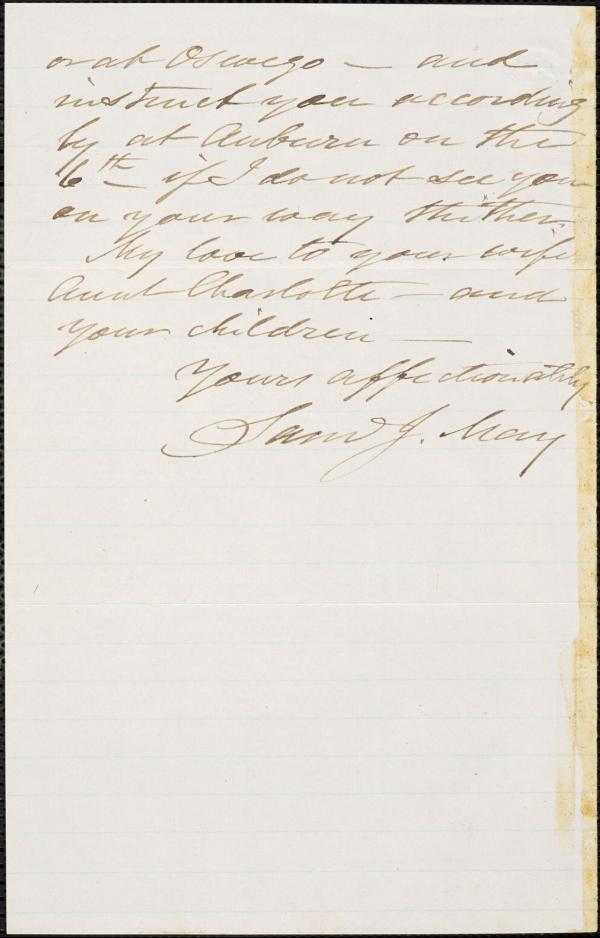 or at Oswego — and
instruct you according
ly at Auburn on the
6th — if I do not see you
on your way thither
My love to your wife
Aunt Charlotte — and
your children —
Yours affectionately
Saml J. May